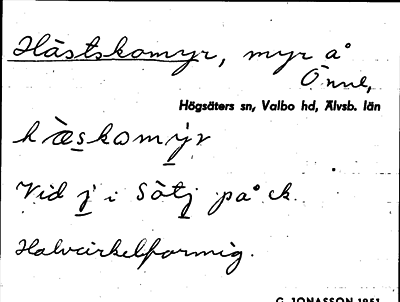 Hästskomyr, myr å
Önne,
Högsäters sn, Valbo hd, Älvsb. län
hæskomy̆r
Vid j i Sötj på ek.
Halvcirkelformig.
G. JONASSON 1951